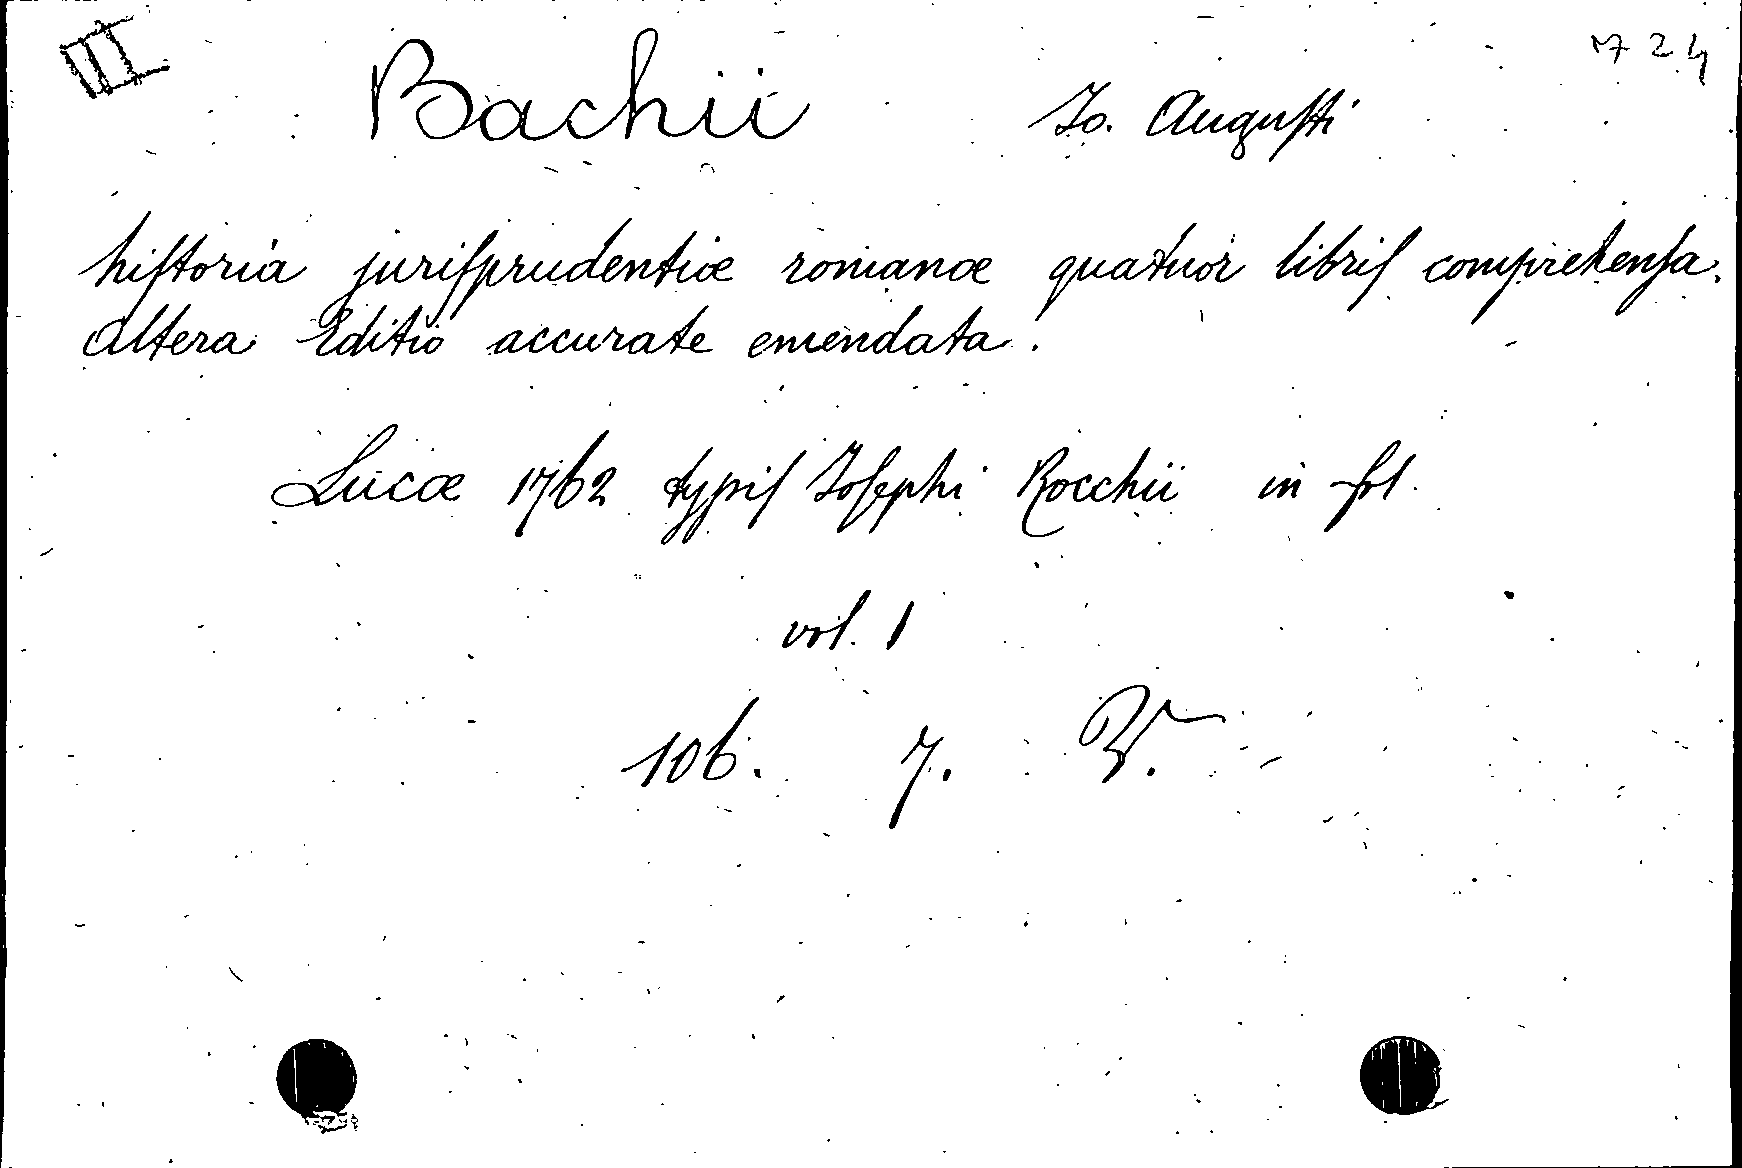 III
724
Bachii Jo. Augusti
historia jurisprudentiæ romanæ quatuor libris comprehensa.
Altera Editio accurate emendata.
Lucæ 1762 typis Josephi Rocchii in fol.
vol. 1
106. 7.